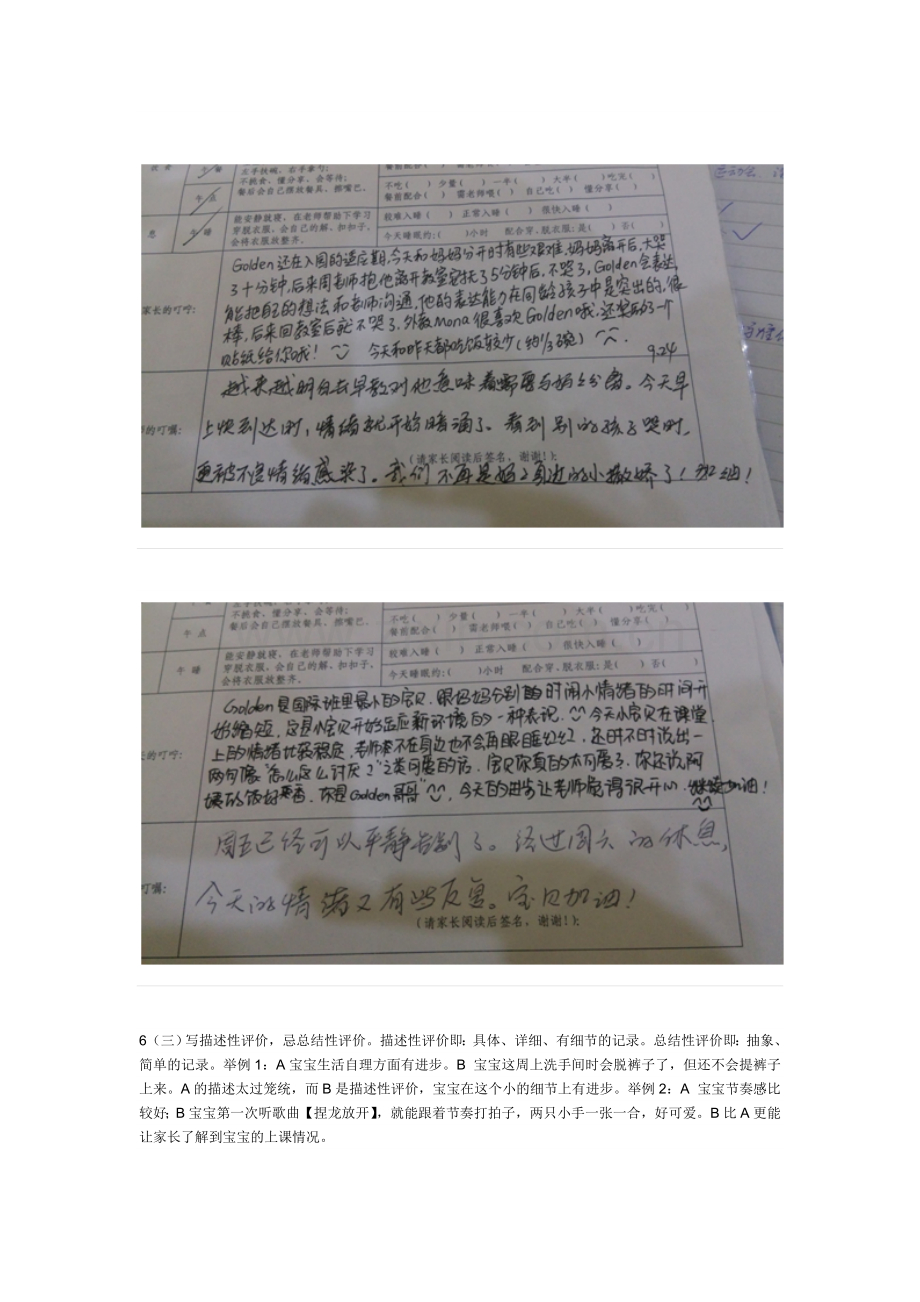 左手扶碗，右手拿勺；
不挑食、懂分享、会等待；
餐后会自己摆放餐具、擦嘴巴。
午点
不吃（ ） 少量（ ） 一半（ ） 大半（ ）吃完（ ）
餐前配合（ ） 需老师喂（ ） 自己吃（ ） 懂分享（ ）
息
午睡
能安静就寝、在老师帮助下学习
穿脱衣服、会自己的解、扣扣子，
会将衣服放整齐。
较难入睡（ ） 正常入睡（ ） 很快入睡（ ）
今天睡眠约：（ ）小时 配合穿、脱衣服：是（ ） 否（ ）
家长的叮咛：
Golden还在入园的适应期，今天和妈妈分开时有些艰难，妈妈离开后，大哭
了十分钟，后来周老师抱他离开教室安抚了5分钟后，不哭了，Golden会表达，
能把自己的想法和老师沟通，他的表达能力在同龄孩子中是突出的，很
棒，后来回教室后就不哭了，外教Mona很喜欢Golden哦，还奖励了一个
贴纸给你哦！ 今天和昨天都吃饭较少（约1/3碗） 9.24
的叮嘱：
越来越明白去早教对他意味着需要与妈妈分离。今天早
上快到达时，情绪就开始暗涌了。看到别的孩子哭时，
（请家长阅读后签名，谢谢！）：
更被不良情绪感染了。我们不再是妈妈身边的小撒娇了！加油！
不挑食、懂分享、会等待；
餐后会自己摆放餐具、擦嘴巴。
午点
不吃（ ） 少量（ ） 一半（ ） 大半（ ）吃完（ ）
餐前配合（ ） 需老师喂（ ） 自己吃（ ） 懂分享（ ）
午睡
能安静就寝、在老师帮助下学习
穿脱衣服、会自己的解、扣扣子，
会将衣服放整齐。
较难入睡（ ） 正常入睡（ ） 很快入睡（ ）
今天睡眠约：（ ）小时 配合穿、脱衣服：是（ ） 否（ ）
的叮咛：
Golden是国际班里最小的宝贝，跟妈妈分别的时闹小情绪的时间开
始缩短，这是小宝贝开始适应新环境的一种表现。今天小宝贝在课堂
上的情绪比较稳定，老师不在身边也不会再眼眶红红，还时不时说出一
两句像“怎么这么讨厌”之类可爱的话，宝贝你真的太可爱了，你还说阿
姨的饭好香，你是Golden哥哥”，今天的进步让老师感到很开心，继续加油！
叮嘱：
周五已经可以平静告别了。经过周六的休息，
今天的情绪又有些反复。宝贝加油！
（请家长阅读后签名，谢谢！）：
6（三）写描述性评价，忌总结性评价。描述性评价即：具体、详细、有细节的记录。总结性评价即：抽象、
简单的记录。举例 1：A 宝宝生活自理方面有进步。B 宝宝这周上洗手间时会脱裤子了，但还不会提裤子
上来。A 的描述太过笼统，而 B 是描述性评价，宝宝在这个小的细节上有进步。举例 2：A 宝宝节奏感比
较好；B 宝宝第一次听歌曲【捏龙放开】，就能跟着节奏打拍子，两只小手一张一合，好可爱。B 比 A 更能
让家长了解到宝宝的上课情况。